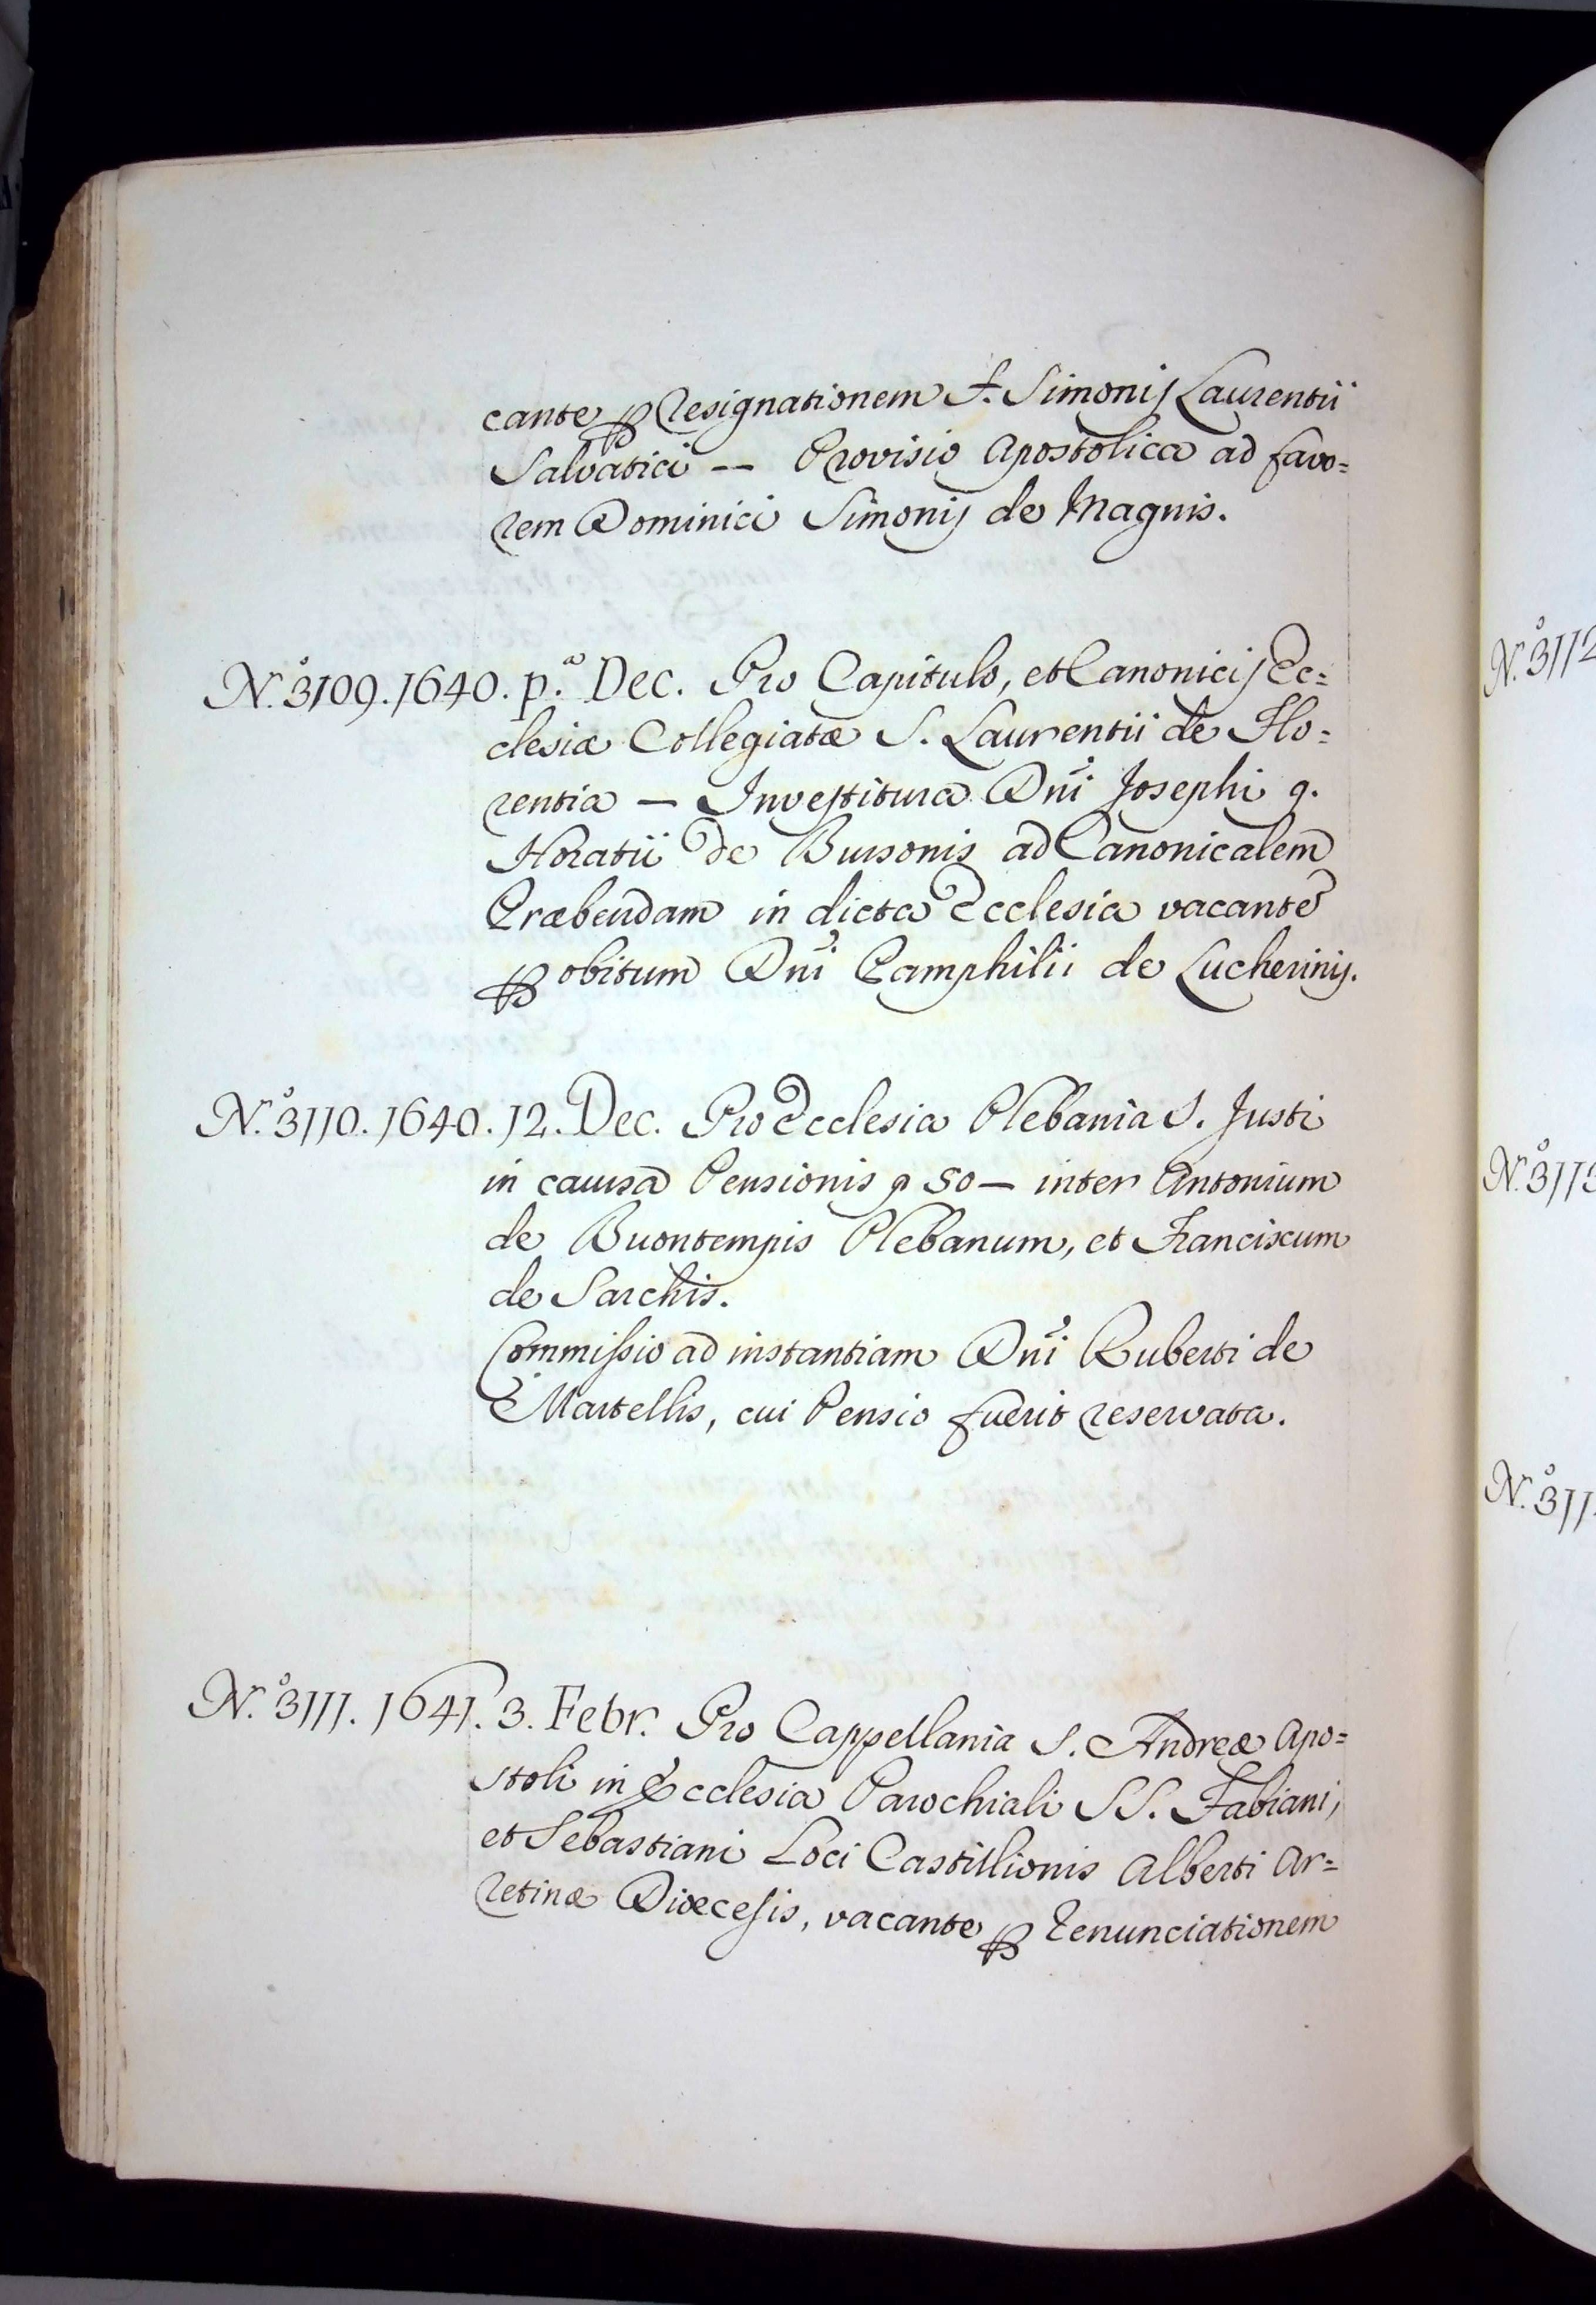 cante ꝑ resignationem F. Simonis Laurentii
Salvatici — Provisio Apostolica ad favo=
rem Dominici Simonis de Magnis.
N.º 3109. 1640. p.ª Dec. Pro Capitulo, et Canonicis Ec=
clesiæ Collegiatæ S. Laurentii de Flo=
rentia — Investitura Dni Josephi q.
Horatii de Bursonis ad Canonicalem
Præbendam in dicta Ecclesia vacante
ꝑ obitum Dni Pamphilii de Lucherinij.
N.º 3110. 1640. 12. Dec. Pro Ecclesia Plebania S. Justi
in causa Pensionis 50 — inter Antonium
de Buontempis Plebanum, et Franciscum
de Sarchis.
Commissio ad instantiam Dni Ruberti de
Martellis, cui Pensio fuerit reservata.
N.º 3111. 1641. 3. Febr. Pro Cappellania S. Andreæ Apo=
stoli in Ecclesia Parochiali SS. Fabiani,
et Sebastiani Loci Castillionis Alberti Ar=
retinæ Diœcesis, vacante ꝑ renunciationem
N.º 3112
N.º 311
N.º 311